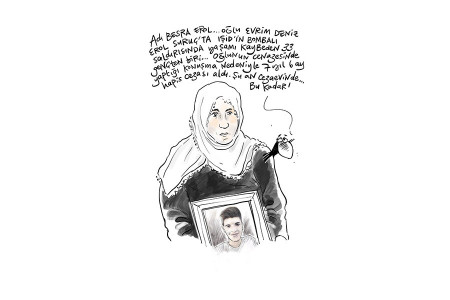 Adı BESRA EROL... OĞLU EVRİM DENİZ
EROL SURUÇ'TA IŞİD'İN BOMBALI
SALDIRISINDA YAŞAMI KAYBEDEN 33
GENÇTEN BİRİ... OĞLUNUN CENAZESİNDE
YAPTIĞI KONUŞMA NEDENİYLE 7 yıl 6 ay
hapis CEZASI ALDI. Şu AN CEZAEVİNDE...
Bu KADAR!